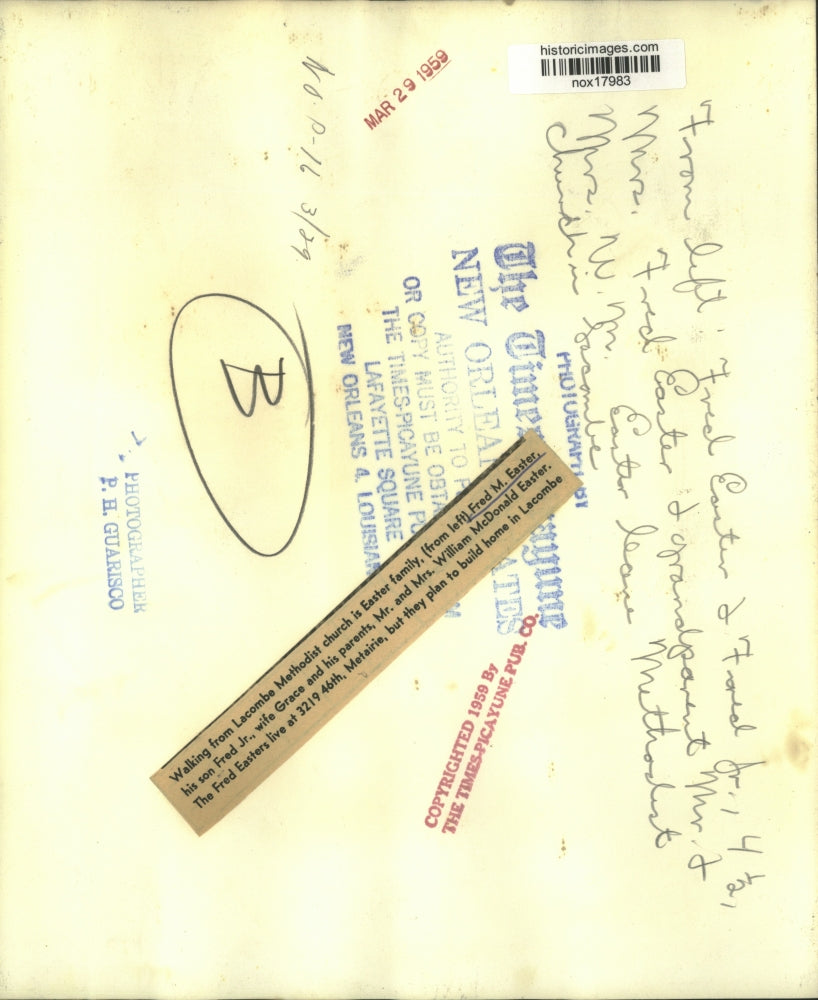 historicimages.com
nox17983
MAR 29 1959
P-16 3/29
From left, Fred Easter & Fred Jr., 4 1/2,
Mrs. Fred Easter & grandparent Mr. &
Mrs. W. M. Easter leave Methodist
Church in Lacombe
PHOTOGRAPH BY
The Times
NEW ORLEANS
STATES
AUTHORITY TO
OR COPY MUST BE
THE TIMES-PICAYUNE
LAFAYETTE SQUARE
NEW ORLEANS 4, LOUISIAN
B
Walking from Lacombe Methodist church is Easter family, (from left) Fred M. Easter,
his son Fred Jr., wife Grace and his parents, Mr. and Mrs. William McDonald Easter.
The Fred Easters live at 3219 46th, Metairie, but they plan to build home in Lacombe
COPYRIGHTED 1959 By
THE TIMES-PICAYUNE PUB. CO.
PHOTOGRAPHER
P. H. GUARISCO